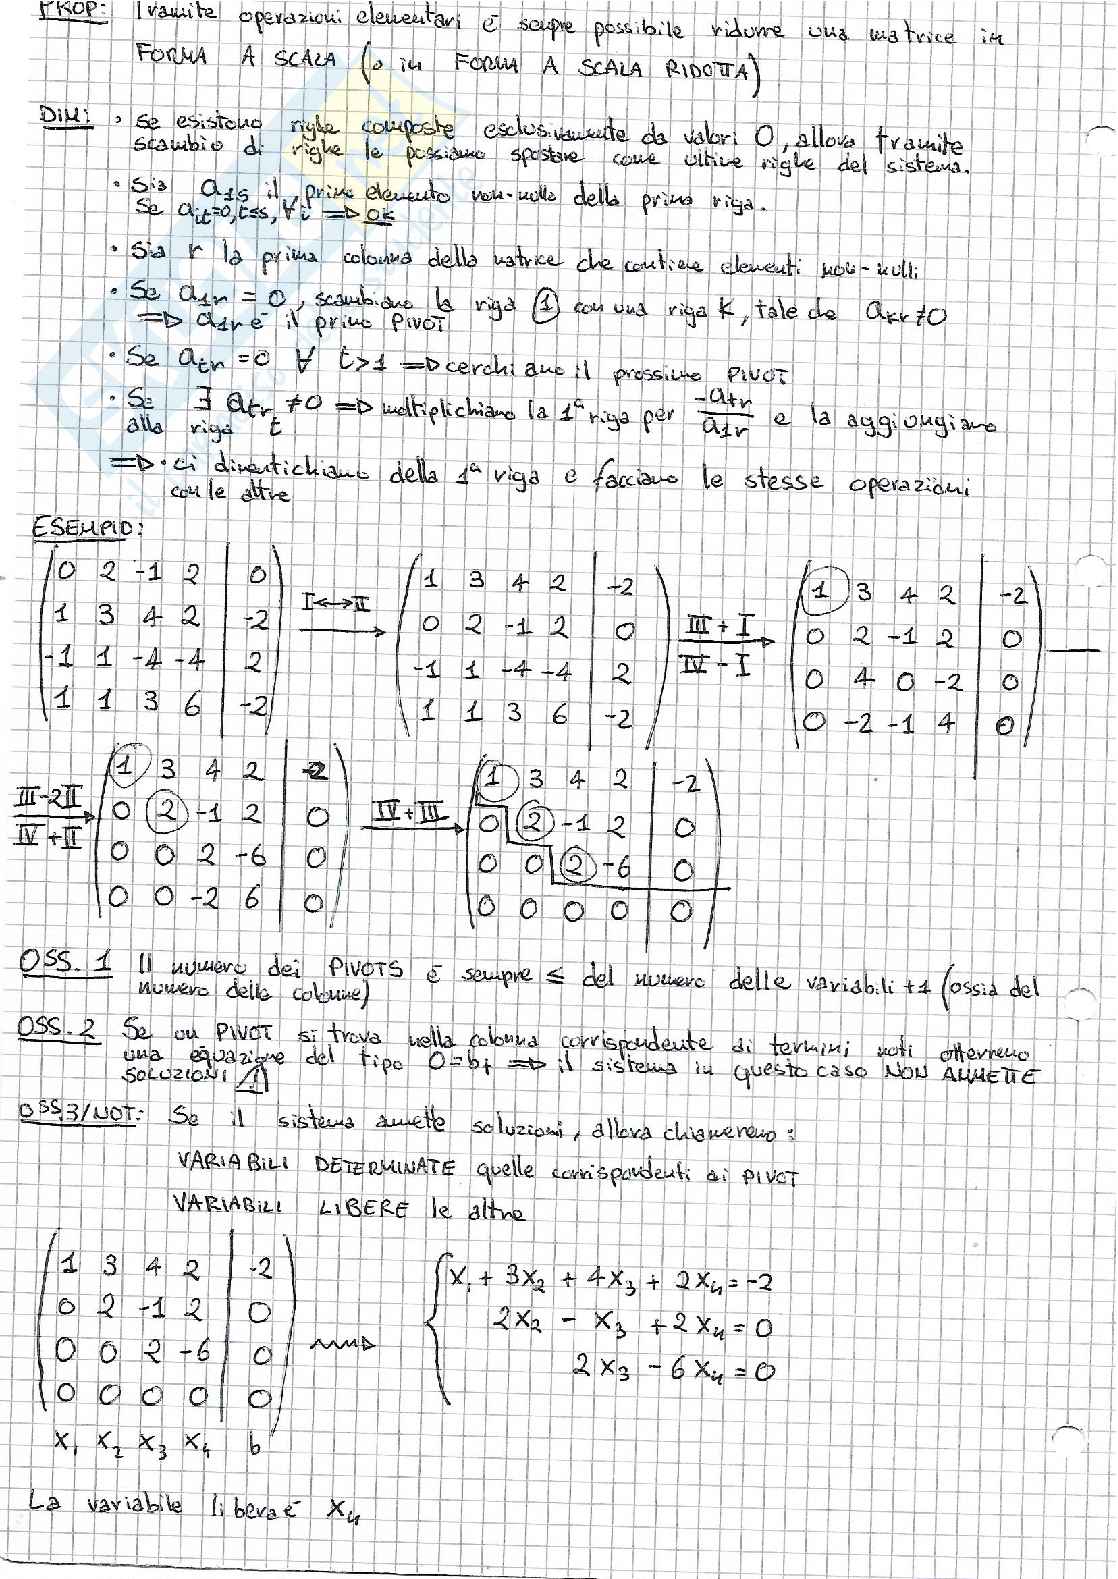 PROP: Tramite operazioni elementari è sempre possibile ridurre una matrice in
FORMA A SCALA (o in FORMA A SCALA RIDOTTA)
DIM: · se esistono righe composte esclusivamente da valori 0, allora tramite
scambio di righe le possiamo spostare come ultime righe del sistema.
· Sia a1s il primo elemento non-nullo della prima riga.
Se ait=0, t≤s, ∀i => OK
· Sia r la prima colonna della matrice che contiene elementi non-nulli
· Se a1r = 0, scambiamo la riga 1 con una riga k, tale che akr ≠ 0
=> a1r è il primo PIVOT
· Se atr = 0 ∀ t>1 => cerchiamo il prossimo PIVOT
· Se ∃ atr ≠ 0 => moltiplichiamo la 1ª riga per -atr/a1r e la aggiungiamo
alla riga t
=> · ci dimentichiamo della 1ª riga e facciamo le stesse operazioni
con le altre
ESEMPIO:
0 2 -1 2 | 0
1 3 4 2 | -2
-1 1 -4 -4 | 2
1 1 3 6 | -2
I<->II
1 3 4 2 | -2
0 2 -1 2 | 0
-1 1 -4 -4 | 2
1 1 3 6 | -2
III + I
IV - I
1 3 4 2 | -2
0 2 -1 2 | 0
0 4 0 -2 | 0
0 -2 -1 4 | 0
III-2II
IV+II
1 3 4 2 | -2
0 2 -1 2 | 0
0 0 2 -6 | 0
0 0 -2 6 | 0
IV+III
1 3 4 2 | -2
0 2 -1 2 | 0
0 0 2 -6 | 0
0 0 0 0 | 0
OSS. 1 Il numero dei PIVOTS è sempre ≤ del numero delle variabili +1 (ossia del
numero delle colonne)
OSS. 2 Se un PIVOT si trova nella colonna corrispondente ai termini noti otterremo
una equazione del tipo 0=bt => il sistema in questo caso NON AMMETTE
SOLUZIONI
OSS.3/NOT: Se il sistema amette soluzioni, allora chiameremo:
VARIABILI DETERMINATE quelle corrispondenti ai PIVOT
VARIABILI LIBERE le altre
1 3 4 2 | -2
0 2 -1 2 | 0
0 0 2 -6 | 0
0 0 0 0 | 0
x1 x2 x3 x4 b
x1 + 3x2 + 4x3 + 2x4 = -2
2x2 - x3 + 2x4 = 0
2x3 - 6x4 = 0
La variabile libera è x4